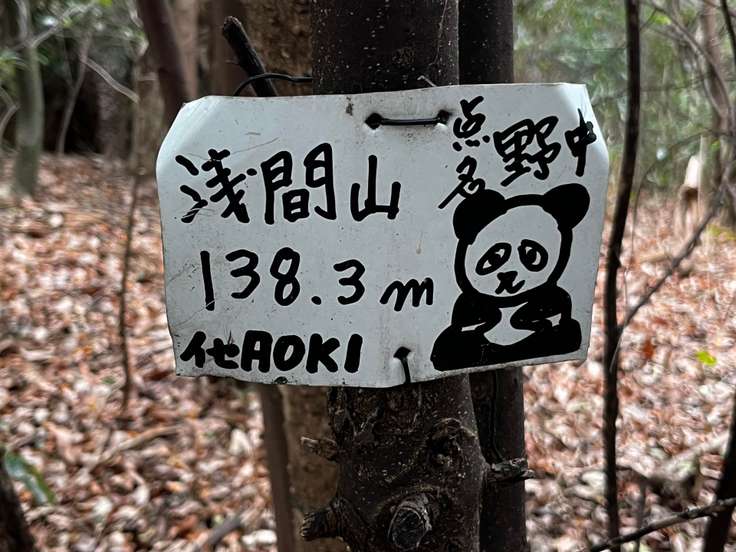 浅間山
138.3m
イセAOKI
点名
野中